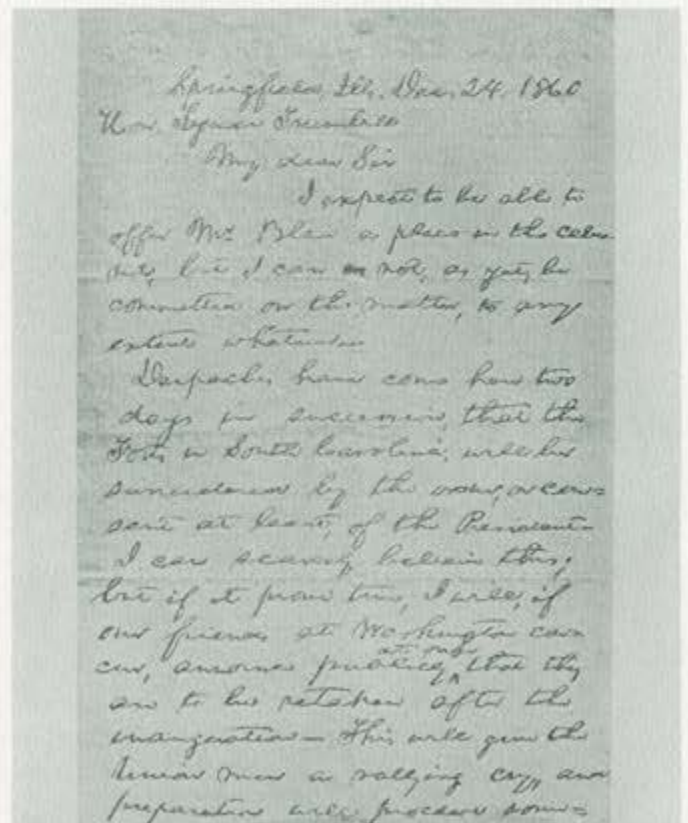 Springfield, Ills. Dec. 24. 1860
Hon. Lyman Trumbull
My dear Sir
I expect to be able to
offer Mr Blair a place in the cabi-
net; but I can not, as yet, be
committed on the matter, to any
extent whatever.
Despaches have come here two
days in succession, that the
Forts in South Carolina, will be
surrendered by the order, or con=
sent at least, of the President—
I can scarcely believe this;
but if it prove true, I will, if
our friends at Washington con-
cur, announce publicly at once that they
are to be retaken after the
inauguration— This will give the
Union men a rallying cry, and
preparation will proceed some=